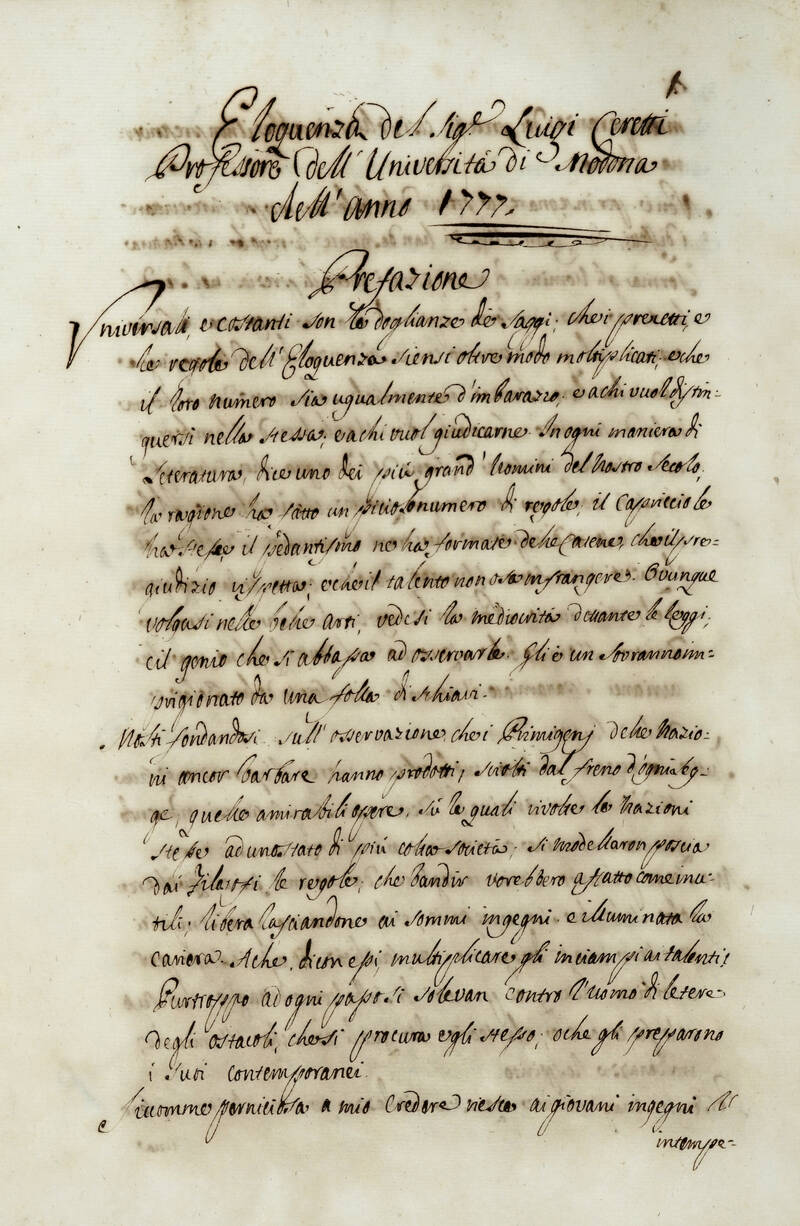 1.
Eloquenza del Sig.e Luigi Ceretti
Professore dell'Università di Modona
dell'anno 1777.
Prefazione
Universali, e costanti son le doglianze de Saggi, che i precetti, e
le regole dell'Eloquenza siensi oltre modo moltiplicati, e che
il loro numero sia ugualmente d'imbarazzo, e a chi vuol distin=
guersi nella stessa, e a chi vuol giudicarne. In ogni maniera di
Leteratura, dice uno dei più grand'homini del nostro secolo,
la ragione ha fatto un picciol numero di regole, il Capriccio le
ha stese, il pedantismo ne ha formate delle Catene, che il pre=
giudizio rispetta, e che il talento non osa infrangere. Ovunque
volgasi nelle belle arti, vedesi la mediocrità dettante le leggi,
e il genio che si abbassa ad osservarle. Egli è un Sovranno im=
prigionato da una folla di schiavi.
Molti fondandosi sull'osservazione, che i Primigenj delle Nazio=
ni ancor barbare hanno prodotti, sciolti dal freno d'ogni leg=
ge, quelle amirabili opere, sù le quali rivolte le Nazioni
stesse ad uno stato di più colta società, si modellaron poscia
dai Filosofi le regole, che bandir vorebbero affatto come inu=
tili, libera lasciandone ai sommi ingegni e illuminata la
Cariera. A che, dicon essi, multiplicare gli inciampi ai talenti!
Purtroppo ad ogni passo si solevan contro l'uomo di letere
degli ostacoli, che si procura egli stesso, o che gli preparono
i suoi Contemporanei.
Siccome perniciosa a mio Credere riesce ai giovani ingegni
e
intempe=